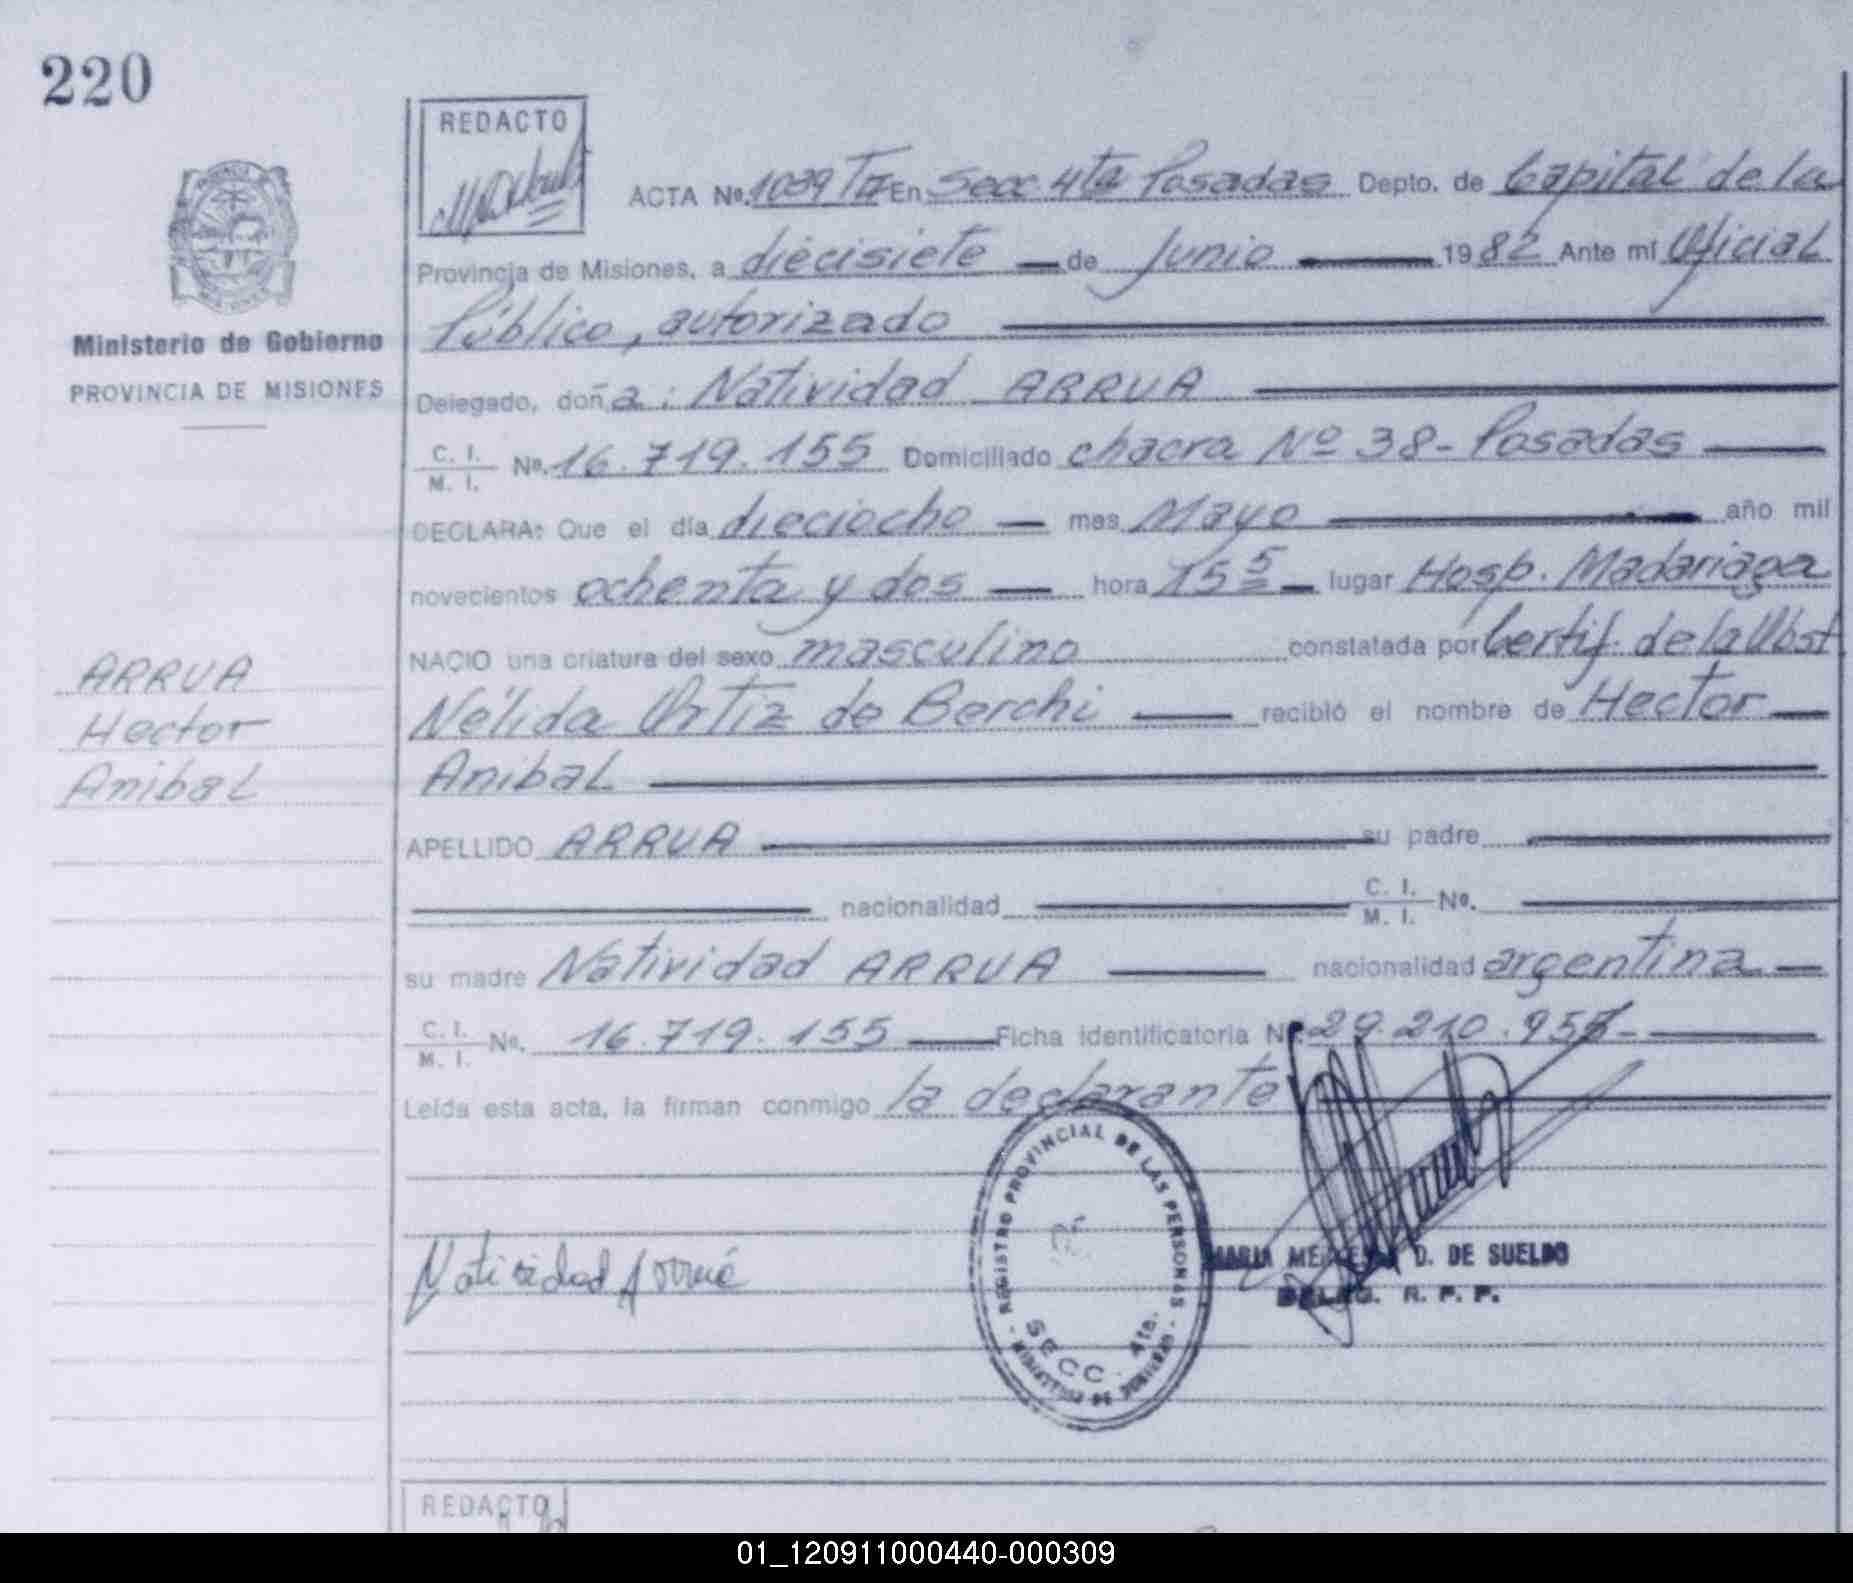 220
REDACTO
ACTA Nº. 1039 En Secc 4ta Posadas Depto. de Capital de la
Provincia de Misiones, a diecisiete de Junio 1982 Ante mí Oficial
Público, autorizado
Ministerio de Gobierno
PROVINCIA DE MISIONES
Delegado, doña: Natividad ARRUA
C. I.
M. I. Nº. 16.719.155 Domiciliado chacra Nº 38- Posadas
DECLARA: Que el día dieciocho mes Mayo año mil
novecientos ochenta y dos hora 15 5 lugar Hosp. Madariaga
NACIO una criatura del sexo masculino constatada por Certif. de la Obst
Nélida Ortiz de Berchi recibió el nombre de Hector
Anibal
ARRUA
Hector
Anibal
APELLIDO ARRUA su padre
nacionalidad C. I.
M. I. Nº.
su madre Natividad ARRUA nacionalidad argentina
C. I.
M. I. Nº. 16.719.155 Ficha identificatoria Nº 29.210.955-
Leída esta acta, la firman conmigo la declarante
Natividad Arrua
REGISTRO PROVINCIAL DE LAS PERSONAS
SECC. 4ta.
MINISTERIO DE GOBIERNO
MARIA MERCEDES D. DE SUELDO
DELEG. R. P. P.
REDACTO
01_120911000440-000309